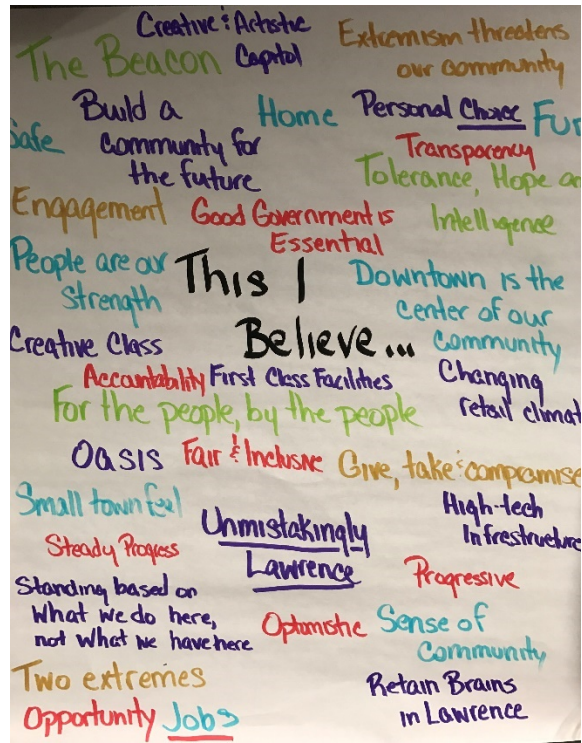 Creative & Artistic
Capitol
The Beacon
Extremism threatens
our community
Build a
community for
the future
Home
Personal Choice
Fun
Safe
Transparency
Tolerance, Hope an
Intelligence
Engagement
Good Government is
Essential
People are our
Strength
This I
Believe...
Downtown is the
center of our
community
Creative Class
Accountability
First Class Facilities
Changing
retail climat
For the people, by the people
Oasis
Fair & Inclusive
Give, take & compromise
Small town feel
High-tech
Infrestructure
Steady Progress
Unmistakingly
Lawrence
Progressive
Standing based on
what we do here,
not what we have here
Optomistic
Sense of
community
Two extremes
Retain Brains
in Lawrence
Opportunity
Jobs